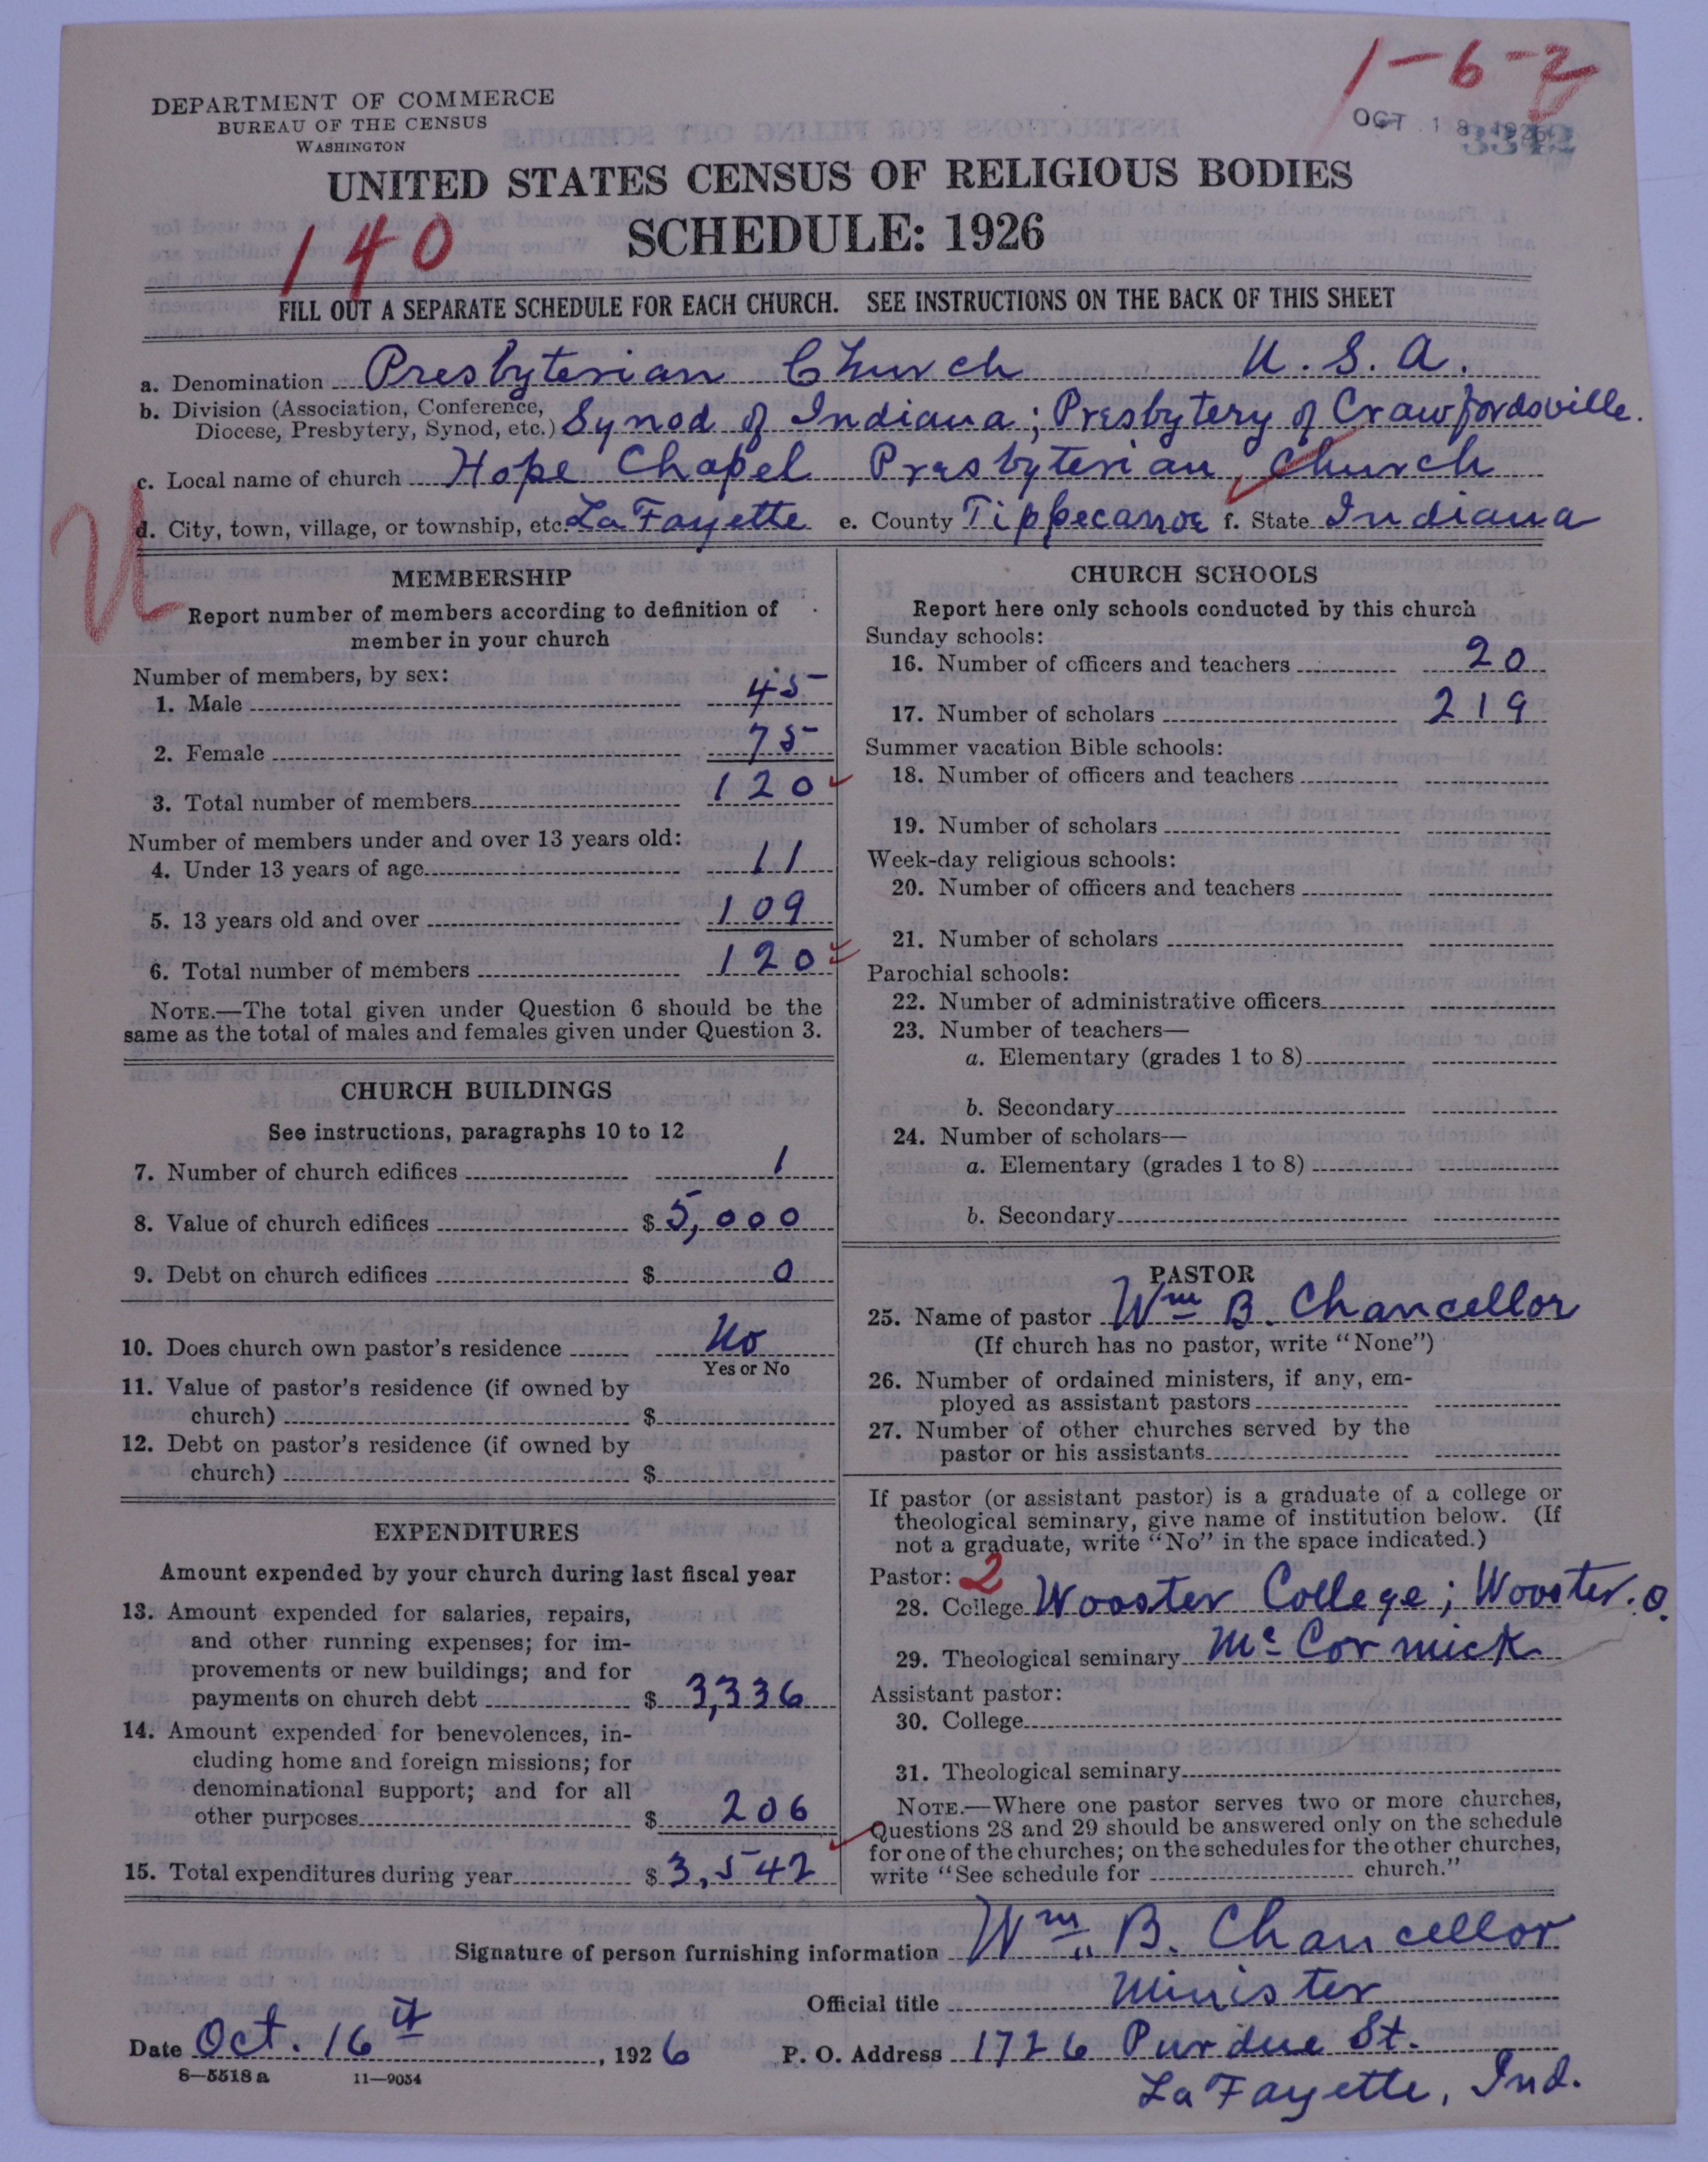 1-6-2
DEPARTMENT OF COMMERCE
BUREAU OF THE CENSUS
WASHINGTON
OCT 18 1926
3342
UNITED STATES CENSUS OF RELIGIOUS BODIES
SCHEDULE: 1926
140
FILL OUT A SEPARATE SCHEDULE FOR EACH CHURCH. SEE INSTRUCTIONS ON THE BACK OF THIS SHEET
a. Denomination Presbyterian Church U.S.A.
b. Division (Association, Conference,
Diocese, Presbytery, Synod, etc.) Synod of Indiana; Presbytery of Crawfordsville.
c. Local name of church Hope Chapel Presbyterian Church
d. City, town, village, or township, etc. LaFayette e. County Tippecanoe f. State Indiana
U
MEMBERSHIP
Report number of members according to definition of
member in your church
Number of members, by sex:
1. Male 45
2. Female 75
3. Total number of members 120
Number of members under and over 13 years old:
4. Under 13 years of age 11
5. 13 years old and over 109
6. Total number of members 120
NOTE.—The total given under Question 6 should be the
same as the total of males and females given under Question 3.
CHURCH BUILDINGS
See instructions, paragraphs 10 to 12
7. Number of church edifices 1
8. Value of church edifices $ 5,000
9. Debt on church edifices $ 0
10. Does church own pastor's residence No
Yes or No
11. Value of pastor's residence (if owned by
church) $
12. Debt on pastor's residence (if owned by
church) $
EXPENDITURES
Amount expended by your church during last fiscal year
13. Amount expended for salaries, repairs,
and other running expenses; for im-
provements or new buildings; and for
payments on church debt $ 3,336
14. Amount expended for benevolences, in-
cluding home and foreign missions; for
denominational support; and for all
other purposes $ 206
15. Total expenditures during year $ 3,542
CHURCH SCHOOLS
Report here only schools conducted by this church
Sunday schools:
16. Number of officers and teachers 20
17. Number of scholars 219
Summer vacation Bible schools:
18. Number of officers and teachers
19. Number of scholars
Week-day religious schools:
20. Number of officers and teachers
21. Number of scholars
Parochial schools:
22. Number of administrative officers
23. Number of teachers—
a. Elementary (grades 1 to 8)
b. Secondary
24. Number of scholars—
a. Elementary (grades 1 to 8)
b. Secondary
PASTOR
25. Name of pastor Wm B. Chancellor
(If church has no pastor, write "None")
26. Number of ordained ministers, if any, em-
ployed as assistant pastors
27. Number of other churches served by the
pastor or his assistants
If pastor (or assistant pastor) is a graduate of a college or
theological seminary, give name of institution below. (If
not a graduate, write "No" in the space indicated.)
Pastor: 2
28. College Wooster College; Wooster. O.
29. Theological seminary McCormick
Assistant pastor:
30. College
31. Theological seminary
NOTE.—Where one pastor serves two or more churches,
Questions 28 and 29 should be answered only on the schedule
for one of the churches; on the schedules for the other churches,
write "See schedule for church."
Signature of person furnishing information Wm B. Chancellor
Official title Minister
Date Oct. 16th, 1926 P. O. Address 1726 Purdue St.
8—5518a 11—9054
LaFayette, Ind.